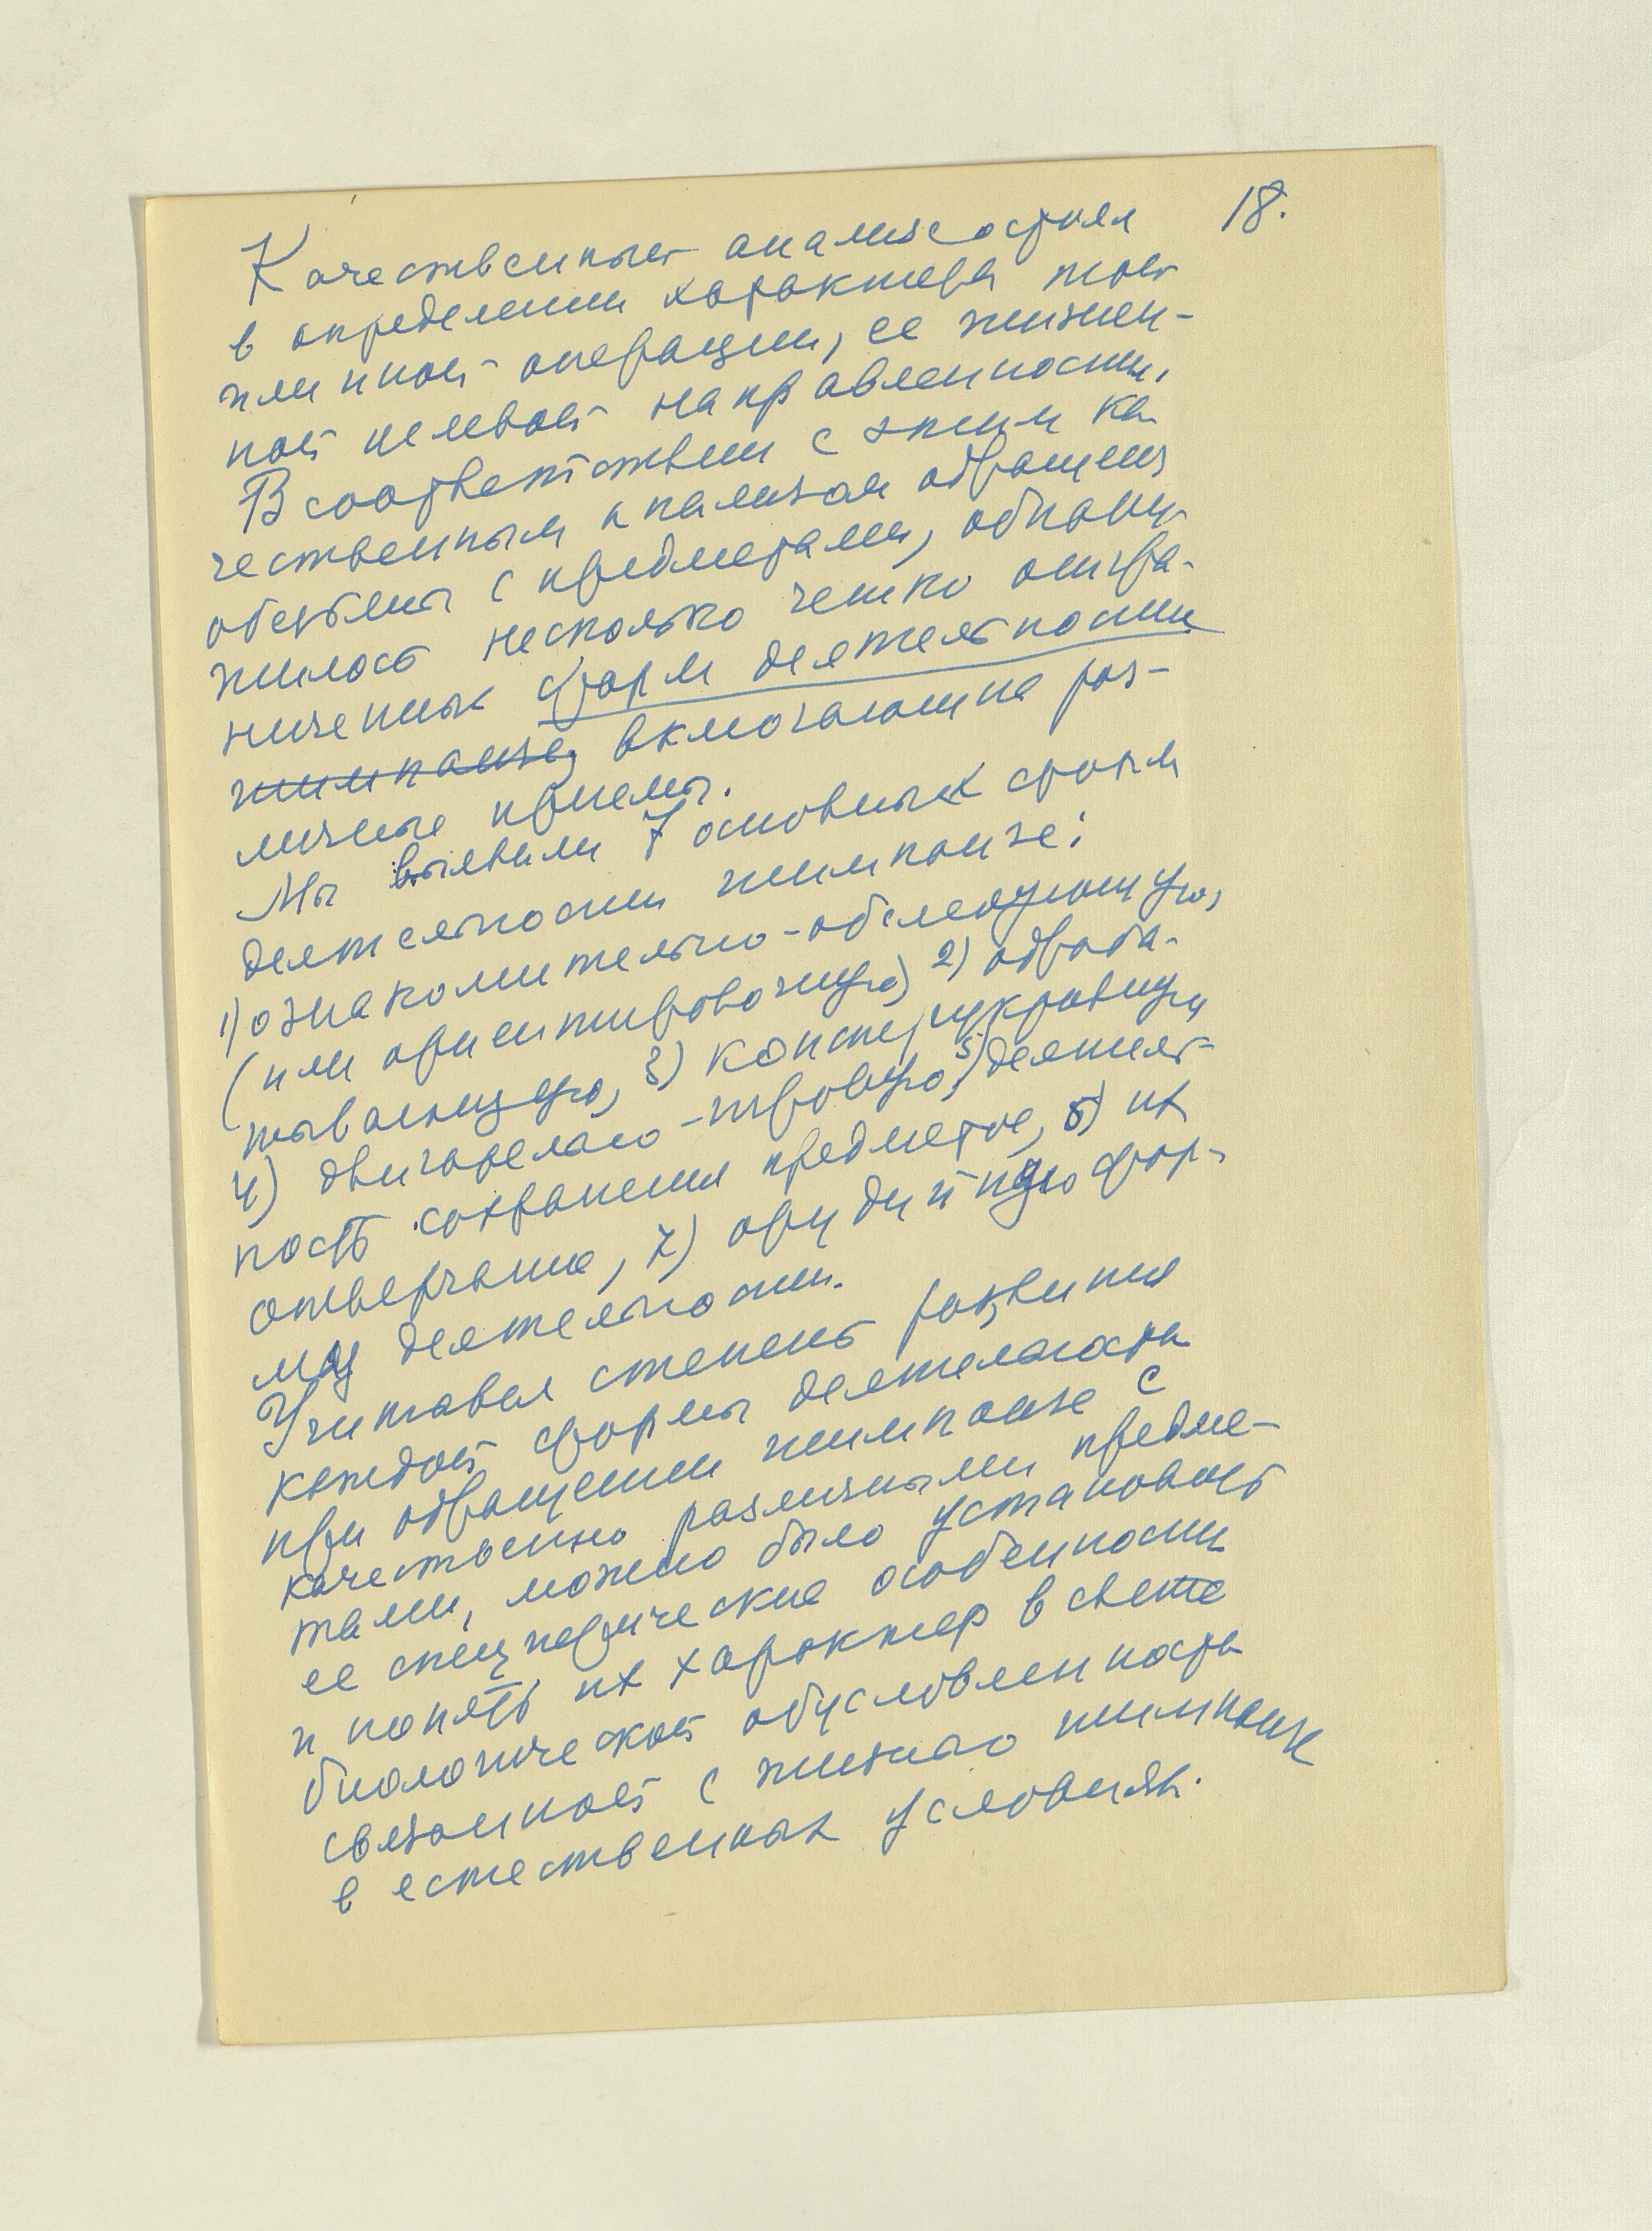 18.
Качественный анализ состоял
в определении характера той
или иной операции, ее жизнен-
ной целевой направленности.
В соответствии с этим ка
чественным анализом обращения
обезьяны с предметами, обнару
жилось несколько четко отгра-
ниченных форм деятельности
шимпанзе, включающие раз-
личные приемы.
Мы выявили 7 основных форм
деятельности шимпанзе:
1) ознакомительно-обследующую,
(или ориентировочную) 2) обраба-
тывающую, 3) конструктивную
4) двигательно-игровую, 5) деятель-
ность сохранения предметов, 6) их
отвергание, 7) орудийную фор-
му деятельности.
Учитывая степень развития
каждой формы деятельности
при обращении шимпанзе с
качественно различными предме-
тами, можно было установить
ее специфические особенности
и понять их характер в свете
биологической обусловленности
связанной с жизнью шимпанзе
в естественных условиях.